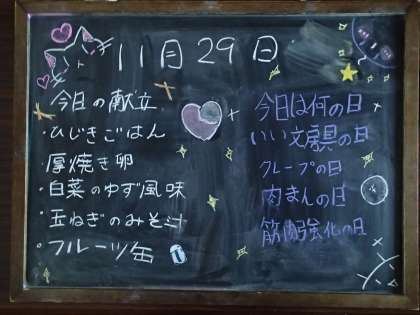 11月29日
今日の献立
・ひじきごはん
・厚焼き卵
・白菜のゆず風味
・玉ねぎのみそ汁
・フルーツ缶
今日は何の日
いい文房具の日
クレープの日
肉まんの日
筋肉強化の日